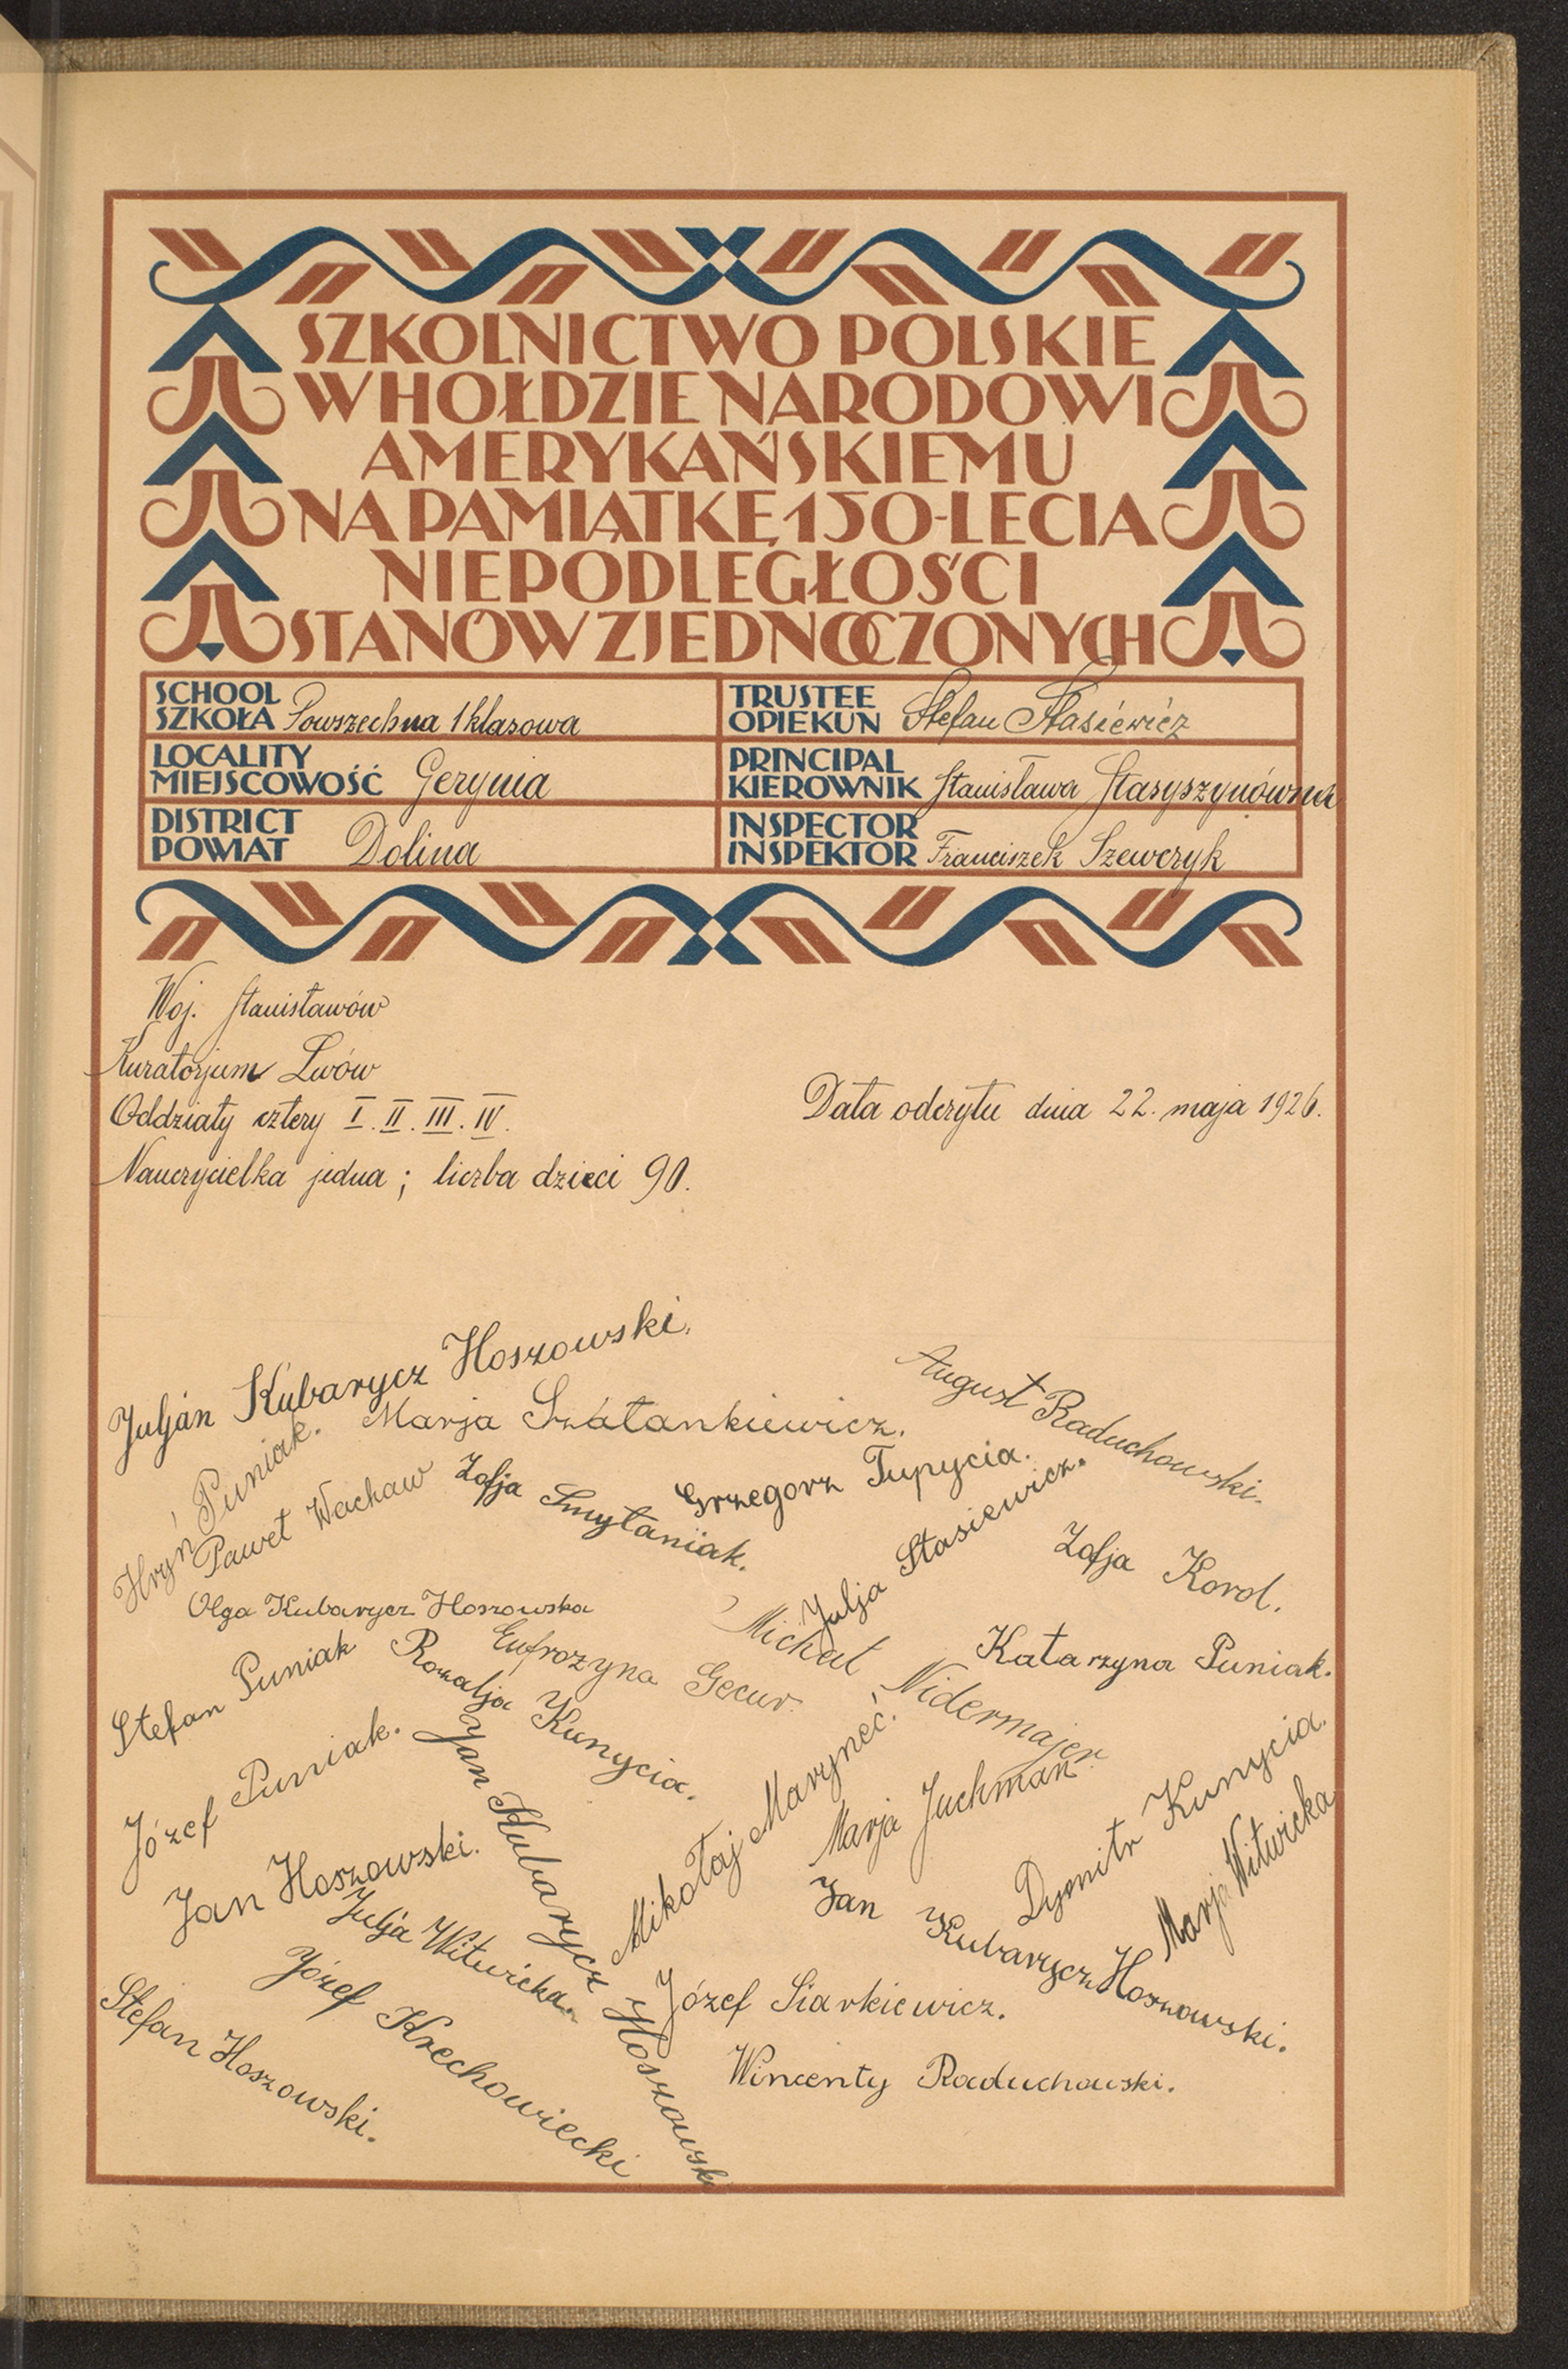 SZKOLNICTWO POLSKIE
W HOŁDZIE NARODOWI
AMERYKAŃSKIEMU
NA PAMIĄTKĘ 150-LECIA
NIEPODLEGŁOŚCI
STANÓW ZJEDNOCZONYCH
SCHOOL
SZKOŁA Powszechna 1 klasowa
TRUSTEE
OPIEKUN Stefan Stasiewicz
LOCALITY
MIEJSCOWOŚĆ Gerynia
PRINCIPAL
KIEROWNIK Stanisława Stasyszynówna
DISTRICT
POWIAT Dolina
INSPECTOR
INSPEKTOR Franciszek Szewczyk
Woj. Stanisławów
Kuratorjum Lwów
Oddziały cztery I. II. III. IV.
Data odczytu dnia 22. maja 1926.
Nauczycielka jedna; liczba dzieci 90.
Julján Kubarycz Hoszowski.
August Raduchowski.
Marja Szałankiewicz.
Hryń Puniak.
Paweł Wachaw
Zofja Smytaniak.
Grzegorz Tupycia.
Julja Stasiewicz.
Zofja Korol.
Olga Kubarycz Hoszowska
Michał Nidermajer.
Katarzyna Puniak.
Stefan Puniak
Eufrozyna Gecur.
Rozalja Kunycia.
Józef Puniak.
Jan Kubarycz Hoszowski
Mikołaj Maryneć.
Marja Juchman
Dymitr Kunycia.
Marja Witwicka
Jan Hoszowski.
Julja Witwicka.
Jan Kubarycz Hoszowski.
Józef Krechowiecki
Józef Siarkiewicz.
Stefan Hoszowski.
Wincenty Raduchowski.